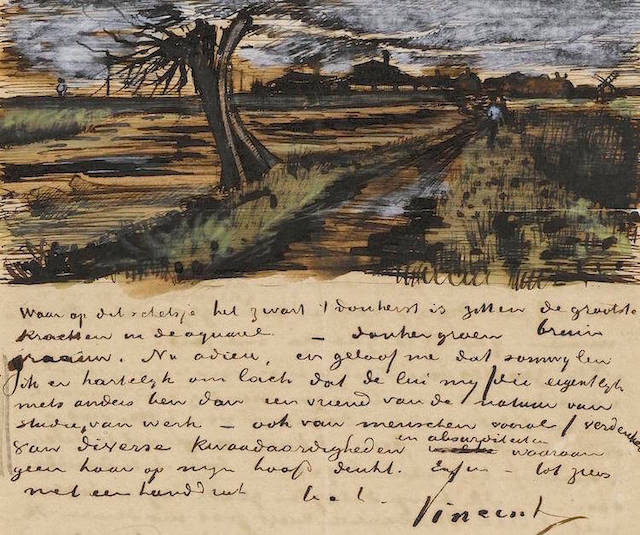 Waar op dit schetsje het zwart 't donkerst is zitten de grootste
krachten in de aquarel — donkergroen bruin
graauw. Nu adieu, en geloof me dat somwylen
ik er hartelyk om lach dat de lui my /die eigentlyk
niets anders ben dan een vriend van de natuur van
studie van werk — ook van menschen vooral / verdenken
van diverse kwaadaardigheden en absurditeiten waaraan
geen haar op myn hoofd denkt. Enfin — tot ziens
met een handdruk t. à t.
Vincent